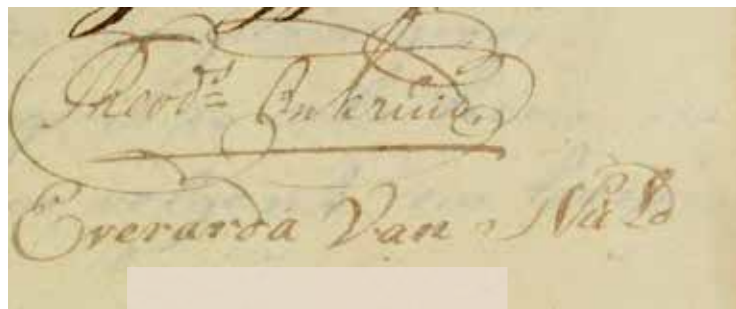 Theod:s Onkruid,
Everarda Van Na Ld